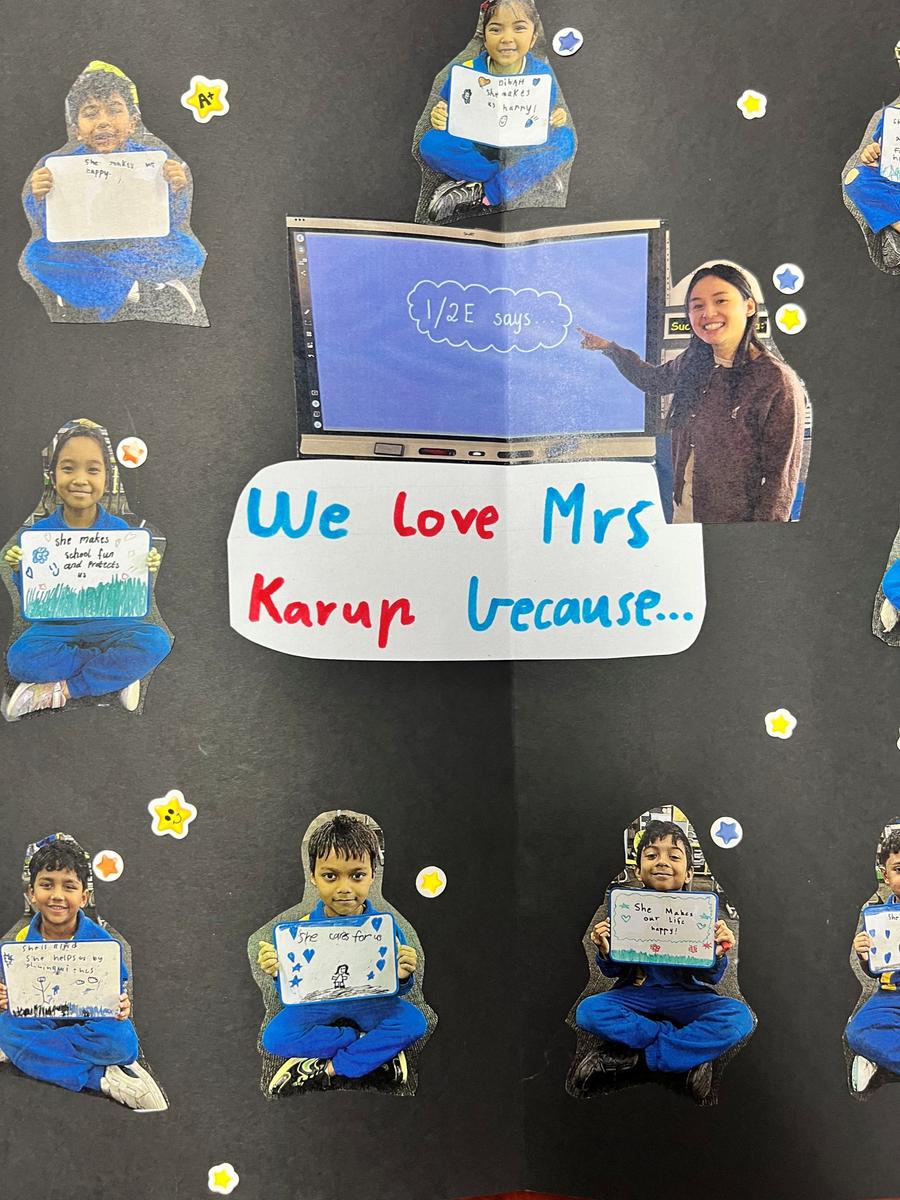 A+
DibAH
She makes
us happy!
She makes us
happy.
1/2E says...
Suc
We love Mrs
Karup because...
she makes
school fun
and Protects
us
She is kind
She helps us by
She cares for us
She Makes
our Life
happy!